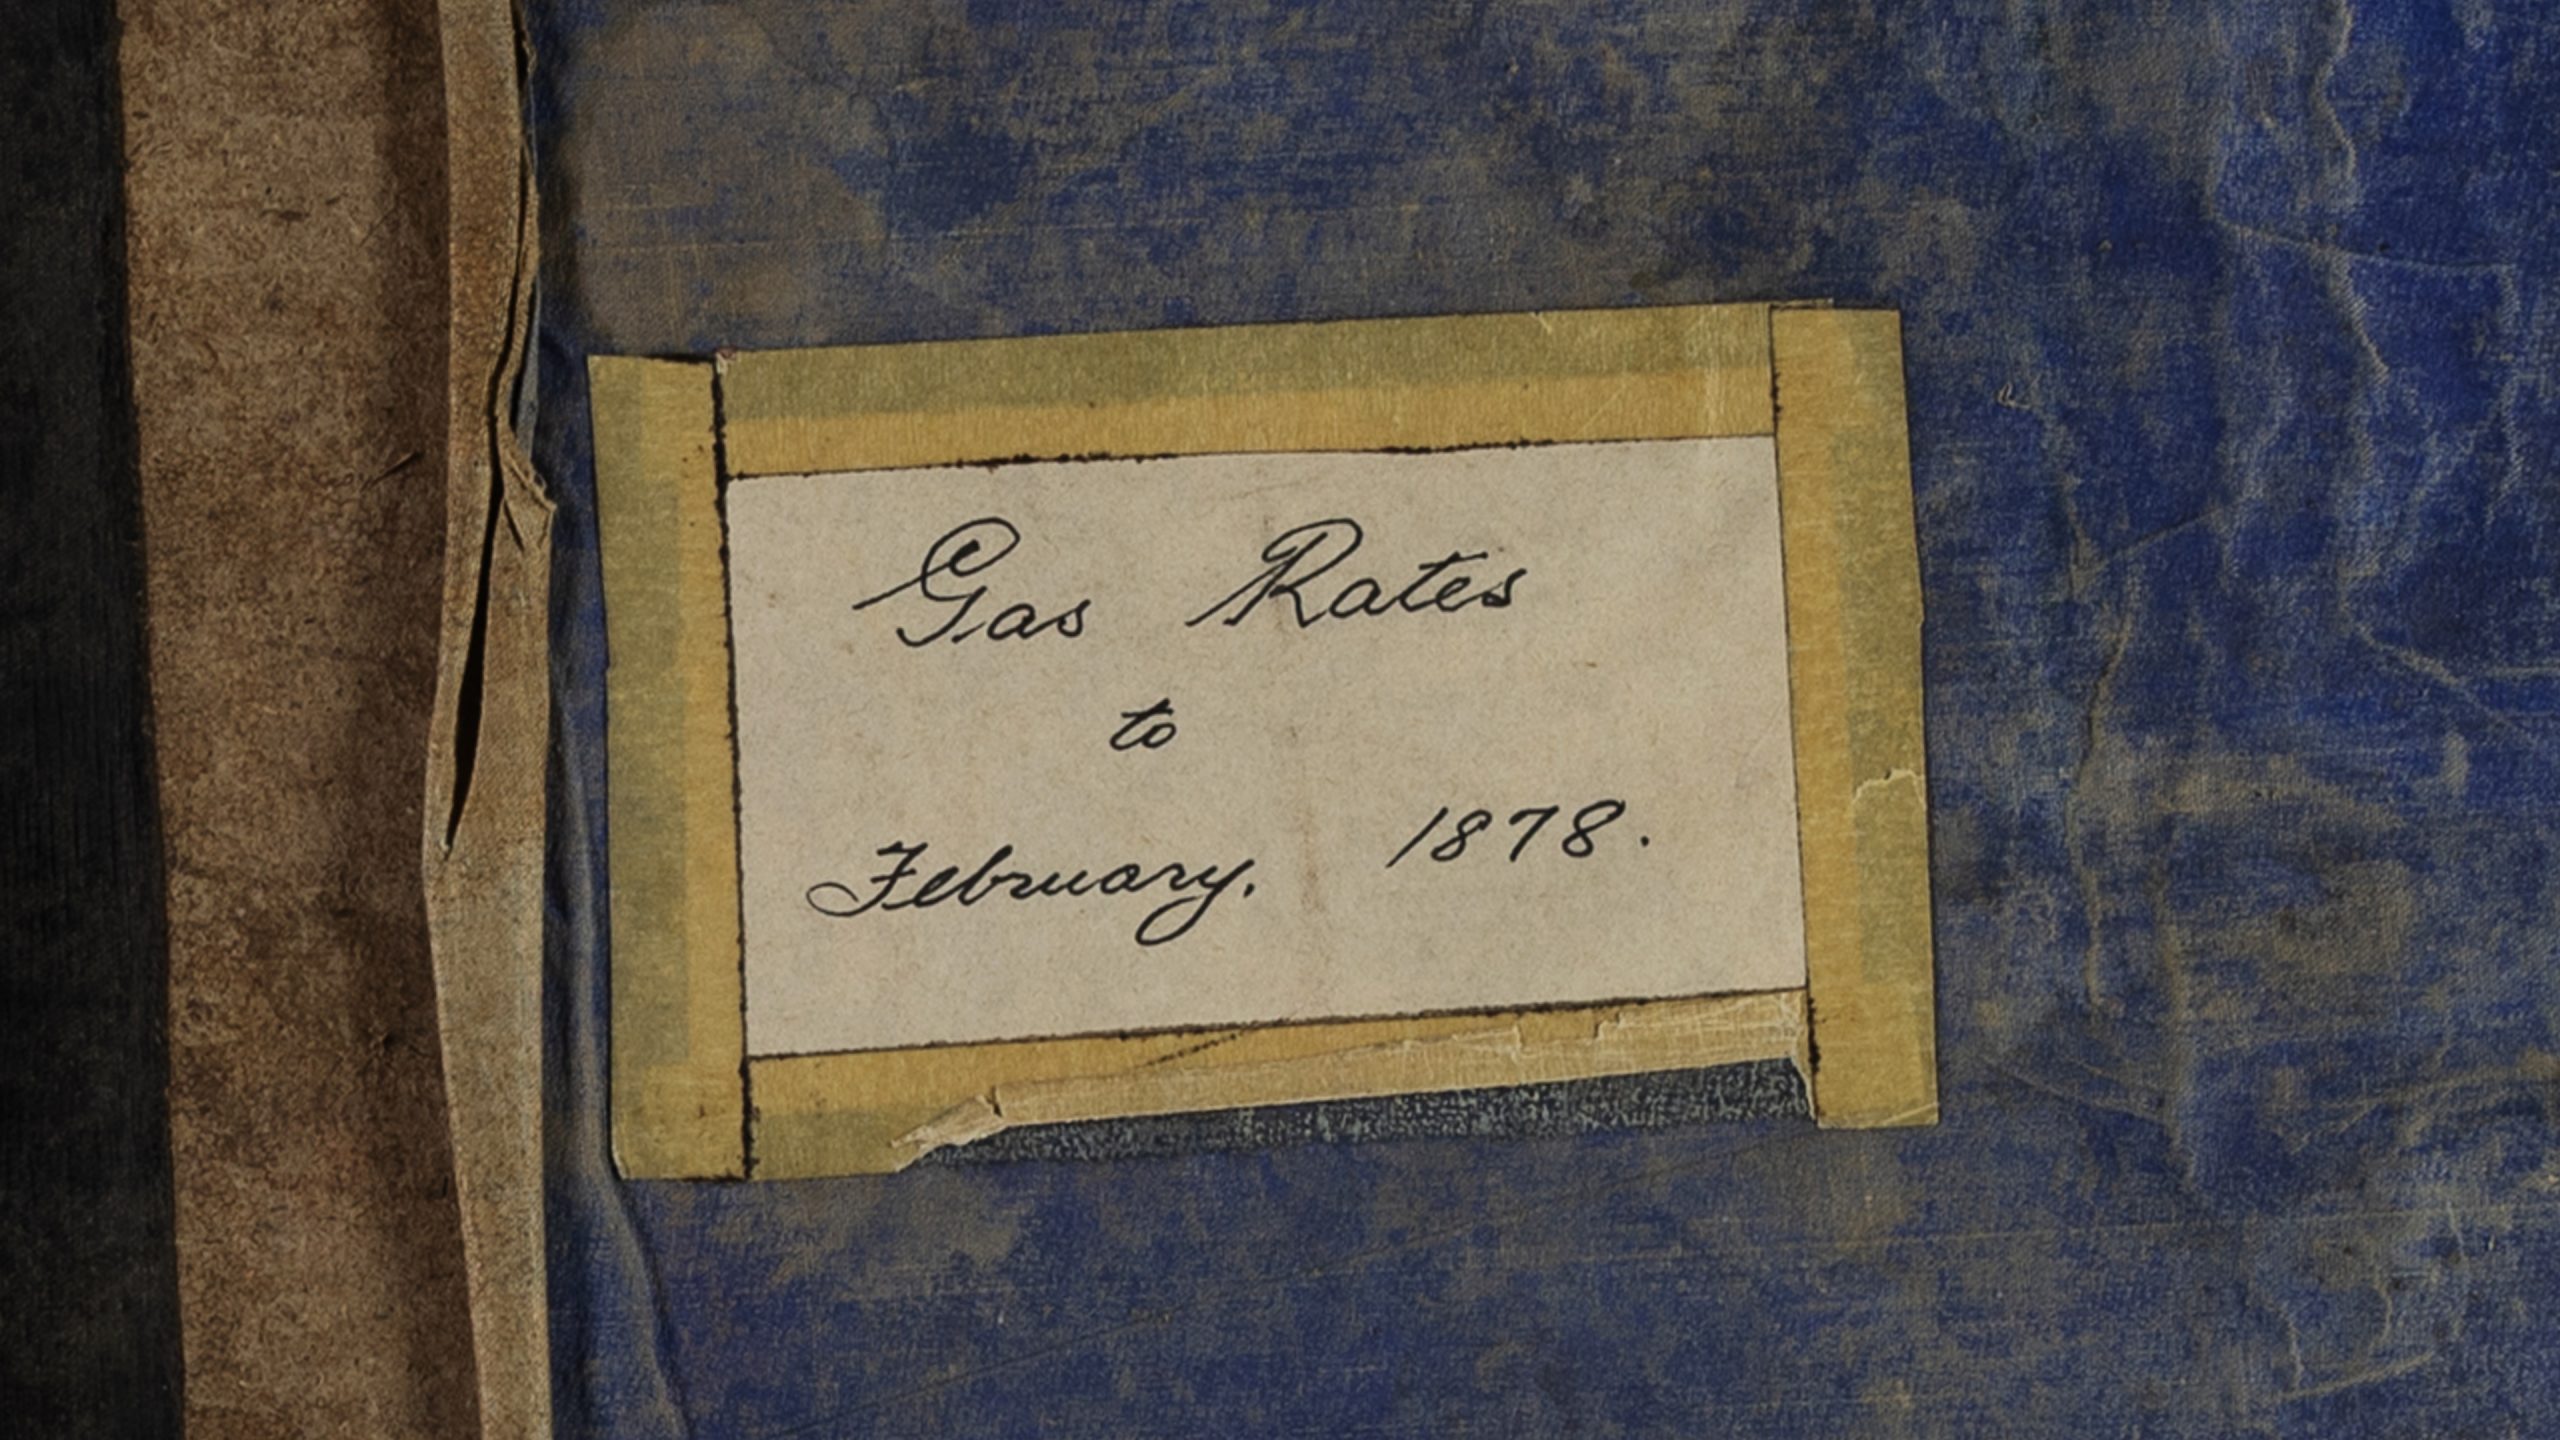 Gas Rates
to
February. 1878.